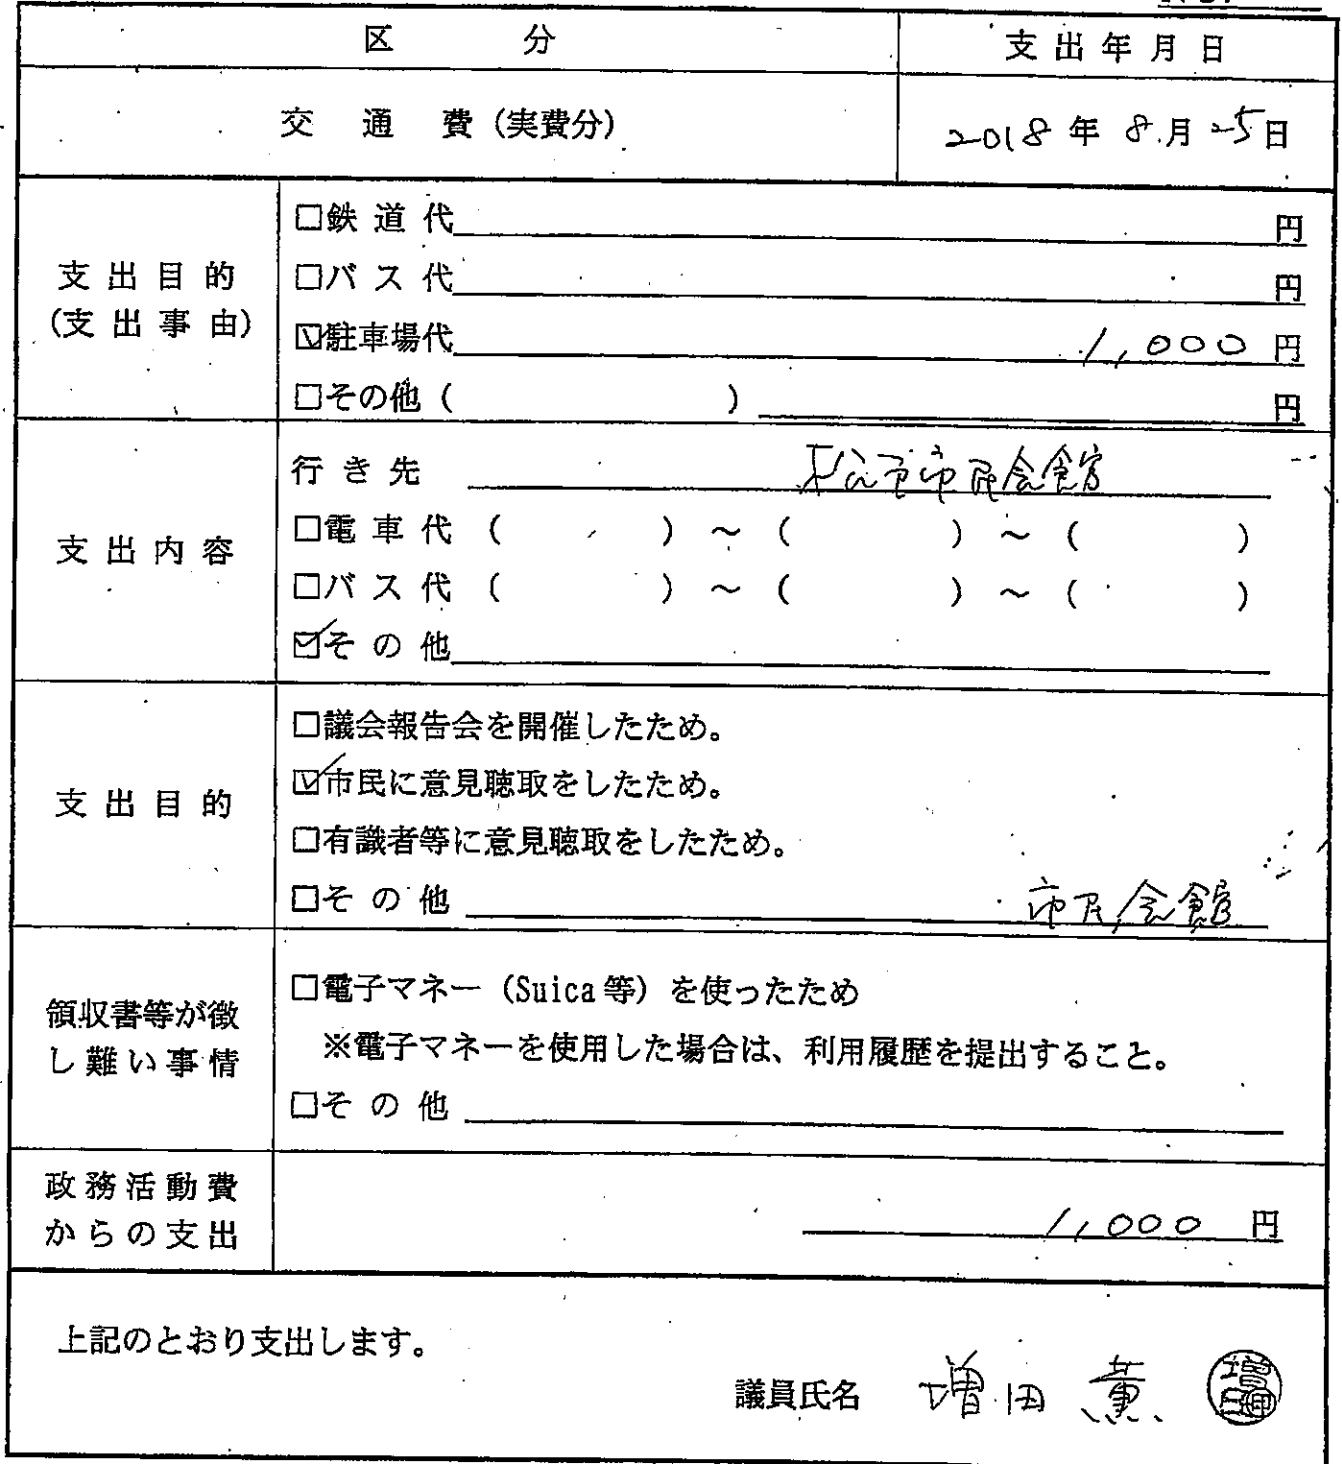 区 分 支出年月日
交通費(実費分) 2018年8月25日
支出目的
(支出事由)
□鉄道代 円
□バス代 円
☑駐車場代 1,000円
□その他( ) 円
支出内容
行き先 松戸市市民会館
□電車代( )~( )~( )
□バス代( )~( )~( )
☑その他
支出目的
□議会報告会を開催したため。
☑市民に意見聴取をしたため。
□有識者等に意見聴取をしたため。
□その他 市民会館
領収書等が徴
し難い事情
□電子マネー(Suica等)を使ったため
※電子マネーを使用した場合は、利用履歴を提出すること。
□その他
政務活動費
からの支出
1,000円
上記のとおり支出します。
議員氏名 増田 薫